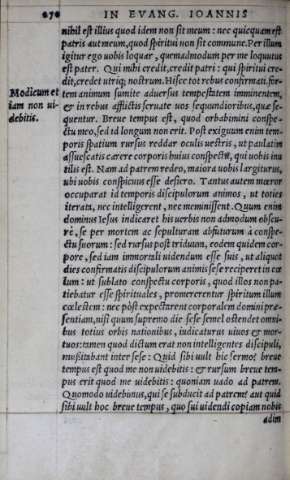 270 IN EVANG. IOANNIS
nihil est illius quod idem non sit meum: nec quicquam est
patris aut meum, quod spiritui non sit commune. Per illum
igitur ego uobis loquar, quemadmodum per me loquutus
est pater. Qui mihi credit, credit patri: qui spiritui cre-
dit, credet utriq; nostrum. Hisce tot rebus confirmati, for-
Modicum et
tem animum sumite aduersus tempestatem imminentem,
iam non ui-
& in rebus afflictis seruate uos sequundioribus, quæ se-
debitis.
quentur. Breue tempus est, quod orbabimini conspe-
ctu meo, sed id longum non erit. Post exiguum enim tem-
poris spatium rursus reddar oculis uestris, ut paulatim
assuescatis carere corporis huius conspectu, qui uobis inu
tilis est. Nam ad patrem redeo, maiora uobis largiturus,
ubi uobis conspicuus esse desiero. Tantus autem mœror
occuparat id temporis discipulorum animos, ut toties
iterata, nec intelligerent, nec meminissent. Quum enim
dominus Iesus indicaret his uerbis non admodum obscu-
re, se per mortem ac sepulturam abfuturum à conspe-
ctu suorum: sed rursus post triduum, eodem quidem cor-
pore, sed iam immortali uidendum esse suis, ut aliquot
dies confirmatis discipulorum animis sese reciperet in cœ
lum: ut sublato conspectu corporis, quod illos non pa-
tiebatur esse spirituales, promererentur spiritum illum
cœlestem: nec pòst expectarent corporalem domini præ-
sentiam, nisi quum supremo die sese semel ostendet omni-
bus totius orbis nationibus, iudicaturus uiuos & mor-
tuos: tamen quod dictum erat non intelligentes discipuli,
mussitabant inter sese: Quid sibi uult hic sermo? breue
tempus est quod me non uidebitis: & rursum breue tem-
pus erit quod me uidebitis: quoniam uado ad patrem.
Quomodo uidebimus, qui se subducit ad patrem? aut quid
sibi uult hoc breue tempus, quo sui uidendi copiam nobis
adim